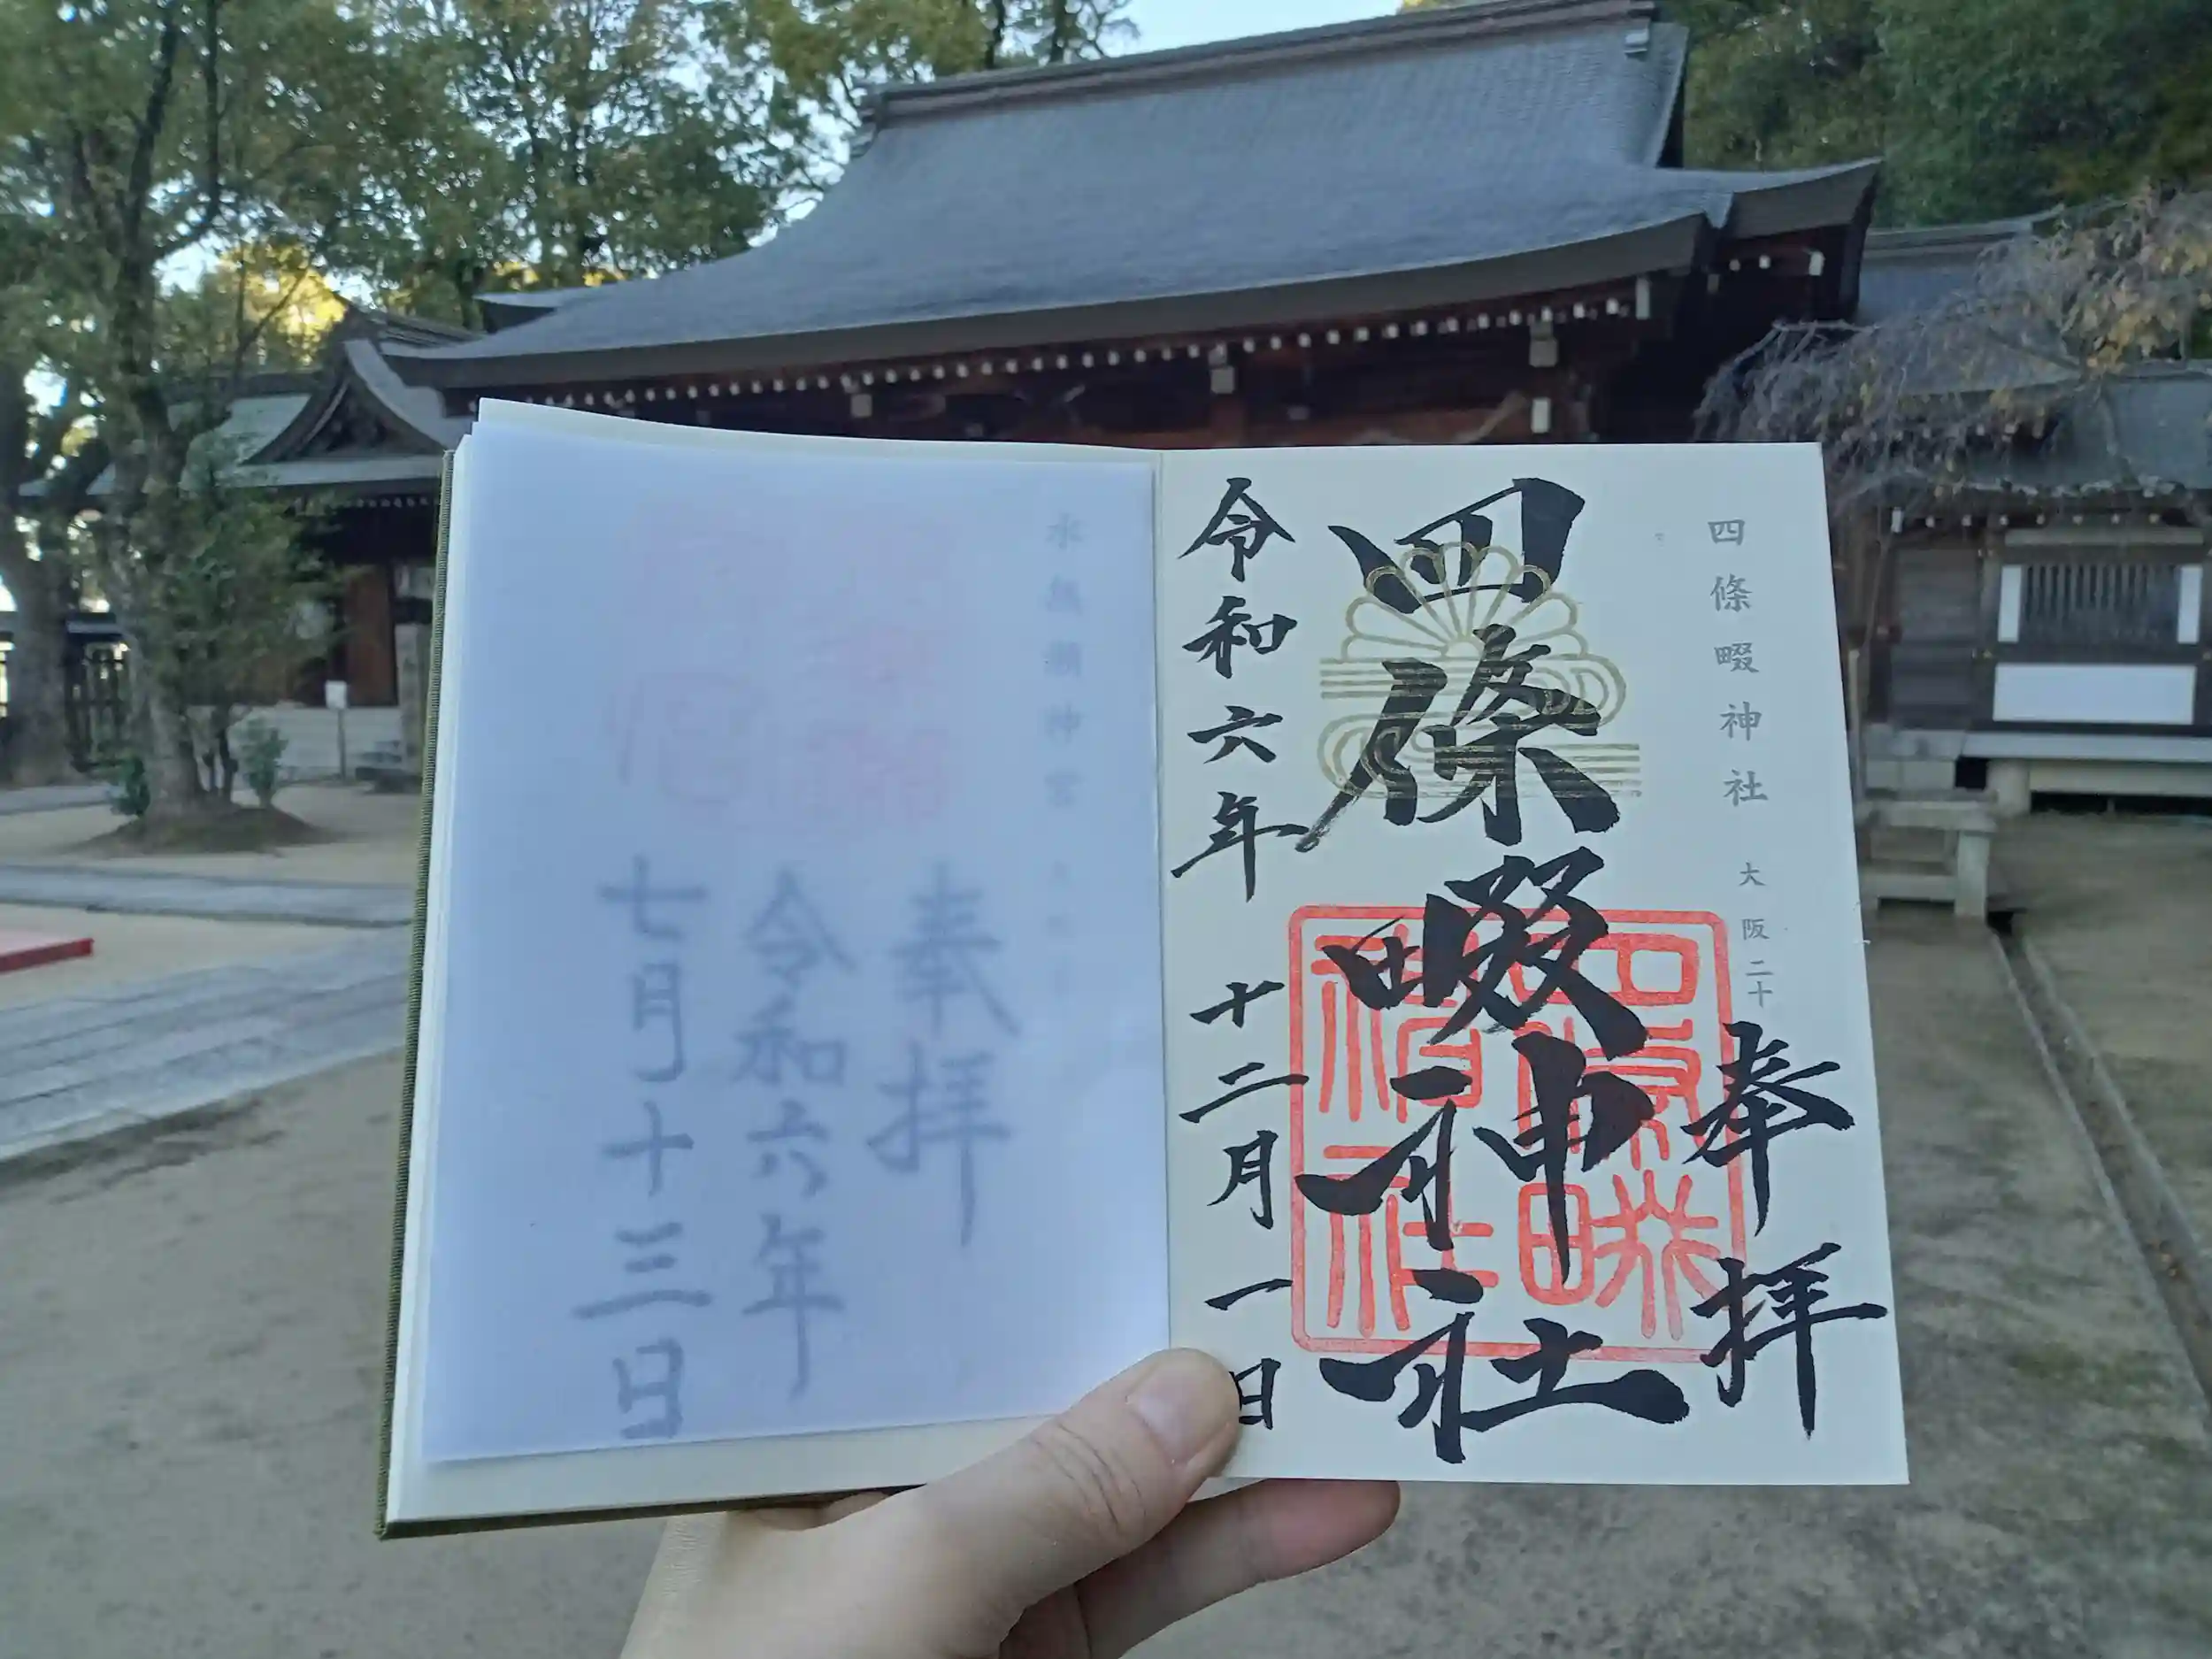 四條畷神社 大阪二十
奉拝
四條畷神社
令和六年十二月一日
水無瀬神宮
奉拝
令和六年
七月十三日